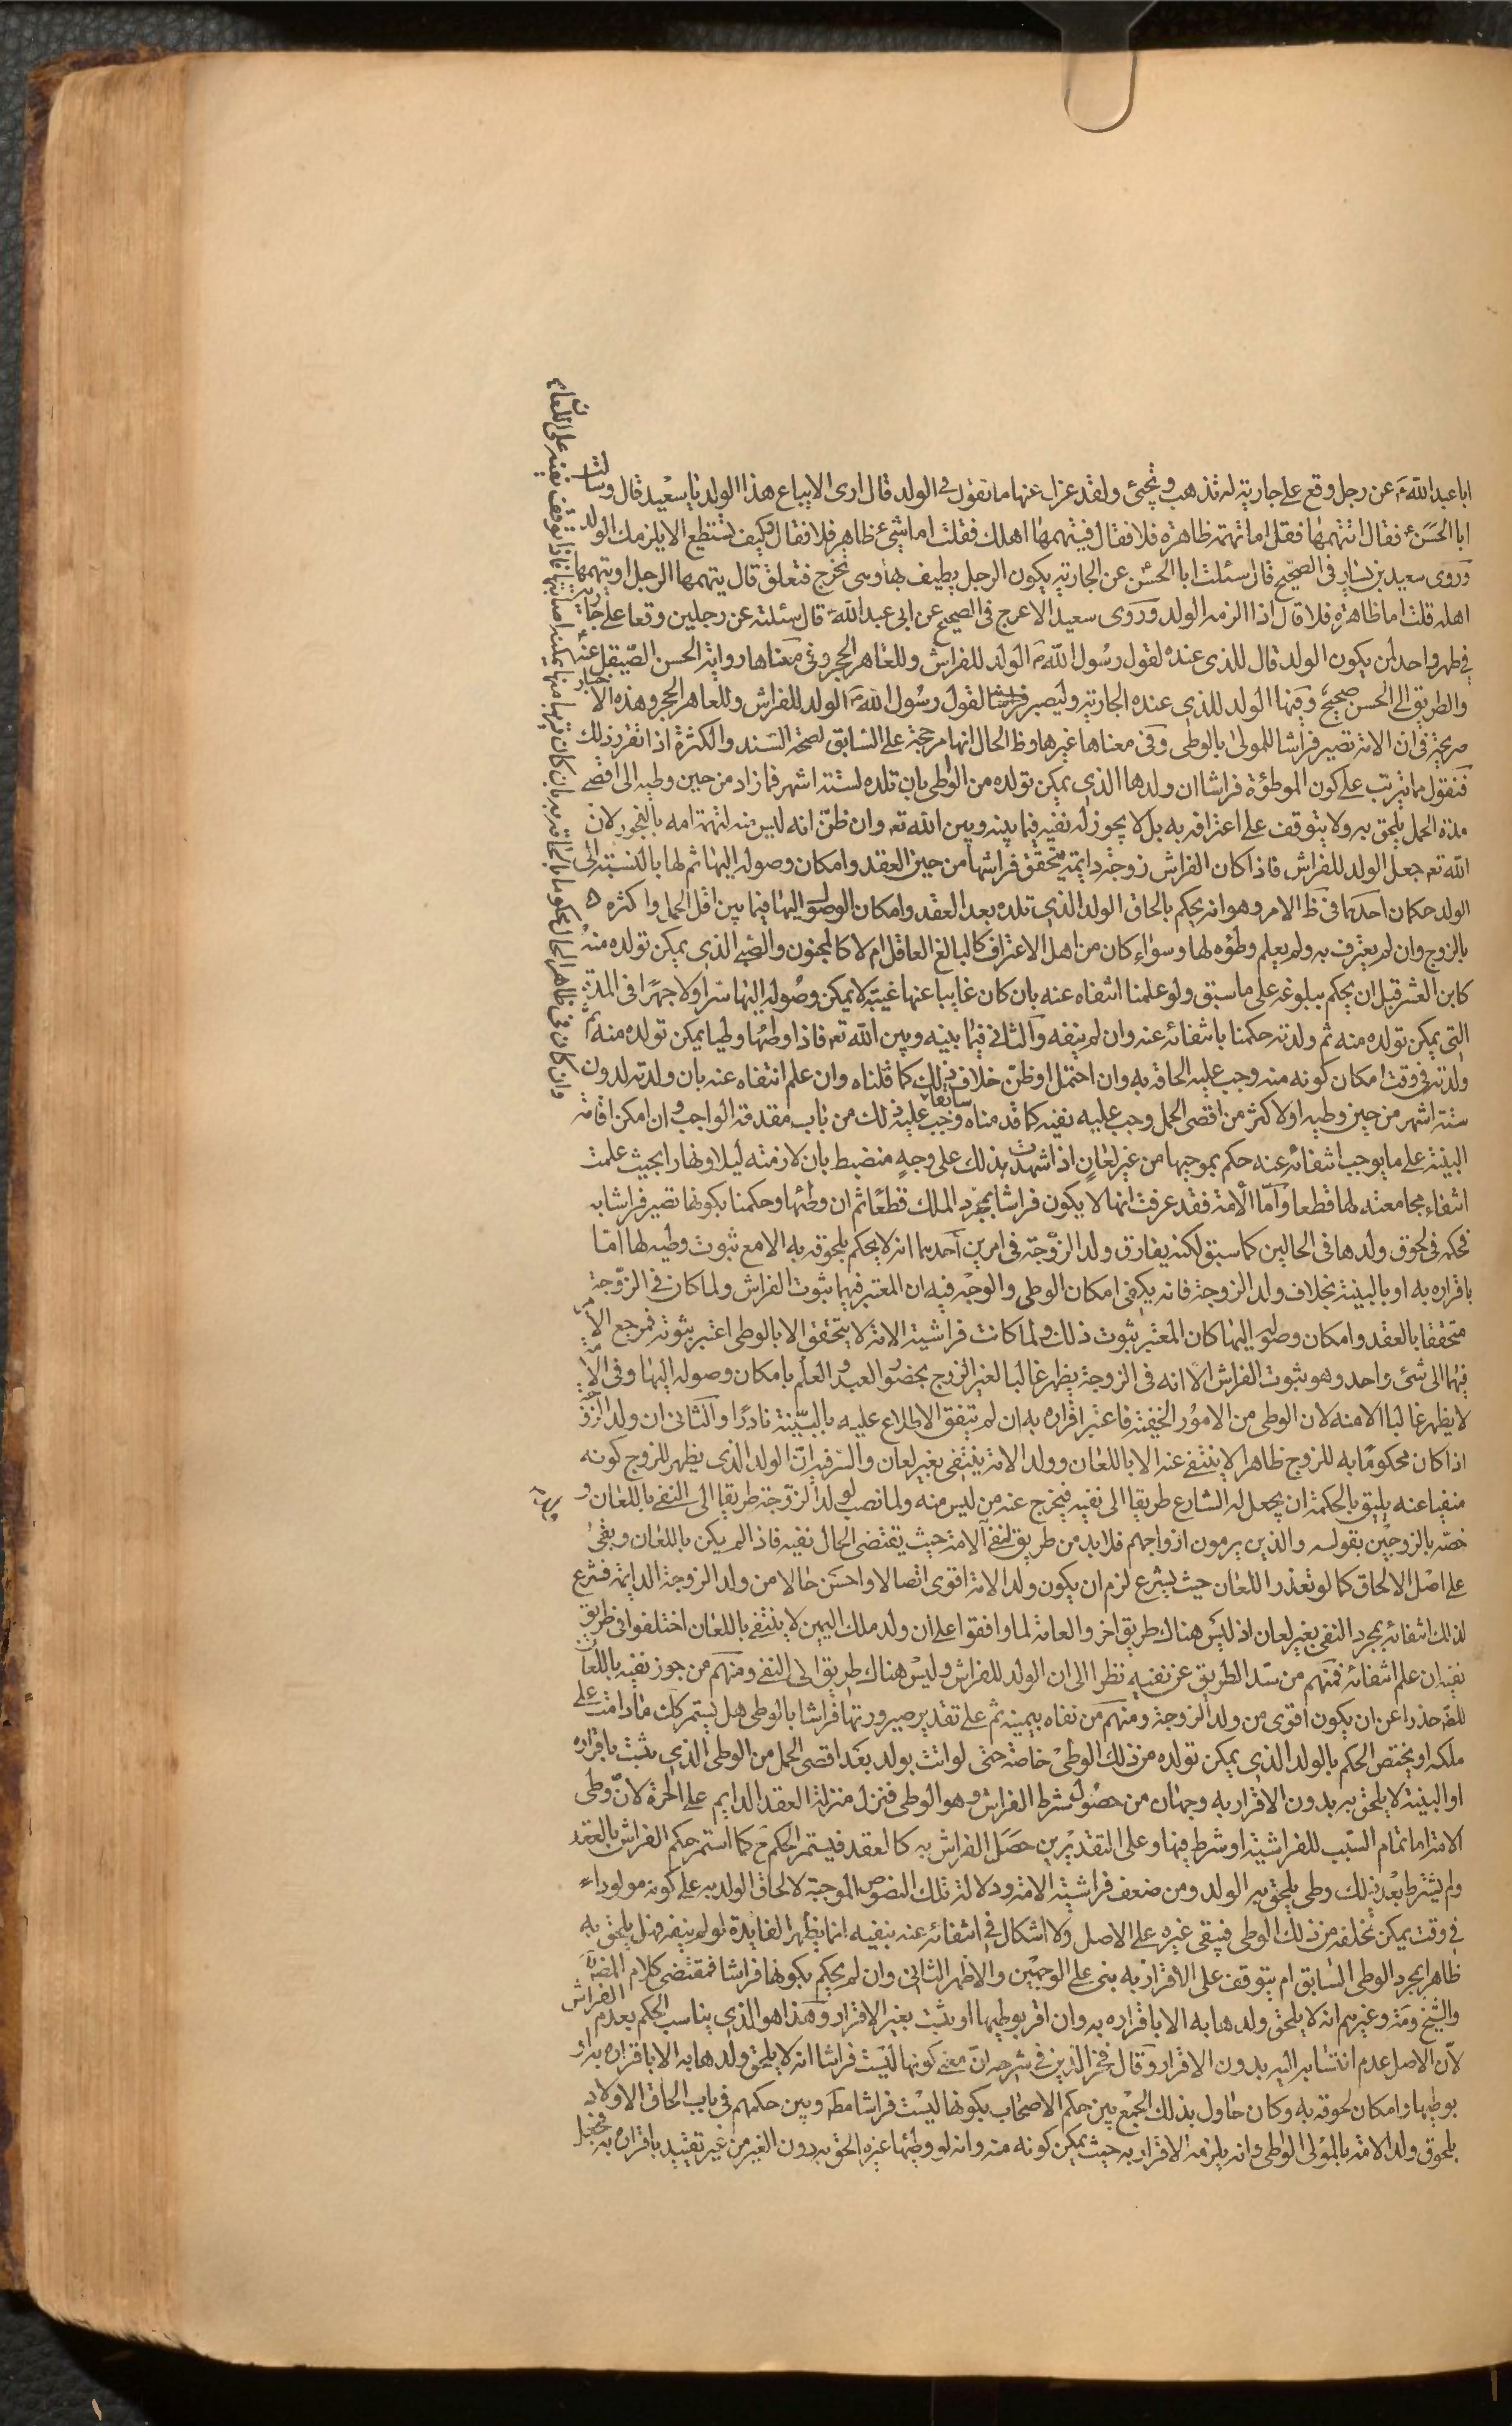 ابا عبد الله ؑ عن رجل وقع على جارية له تذهب وتجئ ولقد عزل عنها ما تقول فى الولد قال ارى الا يباع هذا الولد يا سعيد قال وسالت
ابا الحسن ؑ فقال اتتهمها فقلت اما تهمة ظاهرة فلا فقال فيتهمها اهلك فقلت اما شئ ظاهر فلا فقال فكيف تستطيع الا يلزمك الولد
وروى سعيد بن يسار فى الصحيح قال سئلت ابا الحسن عن الجارية يكون الرجل يطيف بها وهى تخرج فتعلق قال يتهمها الرجل او يتهمها
اهله قلت اما ظاهرة فلا قال اذا الزمه الولد وروى سعيد الاعرج فى الصحيح عن ابى عبد الله ؑ قال سئلته عن رجلين وقعا على جارية
فى طهر واحد لمن يكون الولد قال للذى عنده لقول رسول الله ؐ الولد للفراش وللعاهر الحجر وفى معناها رواية الحسن الصيقل عنه
والطريق الى الحسن صحيح وفيها الولد للذى عنده الجارية وليصبر لقول رسول الله ؐ الولد للفراش وللعاهر الحجر وهذه الاخبار
صريحة فى ان الامة تصير فراشا للمولى بالوطى وفى معناها غيرها وظ الحال انها مرجحة على السابق لصحة السند والكثرة اذا تقرر ذلك
فنقول مما يترتب على كون الموطؤة فراشا ان ولدها الذى يمكن تولده من الوطى بان تلده لستة اشهر فما زاد من حين وطيه الى اقصى
مدة الحمل يلحق به ولا يتوقف على اعترافه به بل لا يجوز له نفيه فيما بينه وبين الله تع وان ظن انه ليس منه لتهمة امه بالفجور لان
الله تع جعل الولد للفراش فاذا كان الفراش زوجة دايمة يتحقق فراشها من حين العقد وامكان وصوله اليها ثم لها بالنسبة الى
الولد حكمان احدهما فى ظ الامر وهو انه يحكم بالحاق الولد الذى تلده بعد العقد وامكان الوصول اليها فيما بين اقل الحمل واكثره
بالزوج وان لم يعترف به ولم يعلم وطؤه لها وسواء كان من اهل الاعتراف كالبالغ العاقل ام لا كالمجنون والصبى الذى يمكن تولده منه
كابن العشر قبل ان يحكم ببلوغه على ما سبق ولو علمنا انتفاه عنه بان كان غايبا عنها غيبة لا يمكن وصوله اليها سرا ولا جهرا فى المدة
التى يمكن تولده منه ثم ولدته حكمنا بانتفائه عنه وان لم ينفه والثانى فيما بينه وبين الله تع فاذا وطئها وطيا يمكن تولده منه ثم
ولدته فى وقت امكان كونه منه وجب عليه الحاقه به وان احتمل او ظن خلاف ذلك كما قلناه سابقا وان علم انتفاه عنه بان ولدته لدون
ستة اشهر من حين وطيه او لاكثر من اقصى الحمل وجب عليه نفيه كما قدمناه وجب عليه ذلك من باب مقدمة الواجب وان امكن اقامة
البينة على ما يوجب انتفائه عنه حكم بموجبها من غير لعان اذا شهدت بذلك على وجه منضبط بان لازمته ليلا ونهارا بحيث علمت
انتفاء مجامعته لها قطعا واما الامة فقد عرفت انها لا يكون فراشا بمجرد الملك قطعا ثم ان وطئها وحكمنا بكونها تصير فراشا به
فحكمه فى لحوق ولدها فى الحالين كما سبق لكنه يفارق ولد الزوجة فى امرين احدهما انه لا يحكم بلحوقه به الا مع ثبوت وطيه لها اما
باقراره به او بالبينة بخلاف ولد الزوجة فانه يكفى امكان الوطى والوجه فيه ان المعتبر فيهما ثبوت الفراش ولما كان فى الزوجة
متحققا بالعقد وامكان وصوله اليها كان المعتبر ثبوت ذلك ولما كانت فراشية الامة لا يتحقق الا بالوطى اعتبر ثبوته فمرجع الامر
فيهما الى شئ واحد وهو ثبوت الفراش الا انه فى الزوجة يظهر غالبا لغير الزوج بحضور العقد والعلم بامكان وصوله اليها وفى الامة
لا يظهر غالبا الا منه لان الوطى من الامور الخفية فاعتبر اقراره به ان لم يتفق الاطلاع عليه بالبينة نادرا والثانى ان ولد الزوجة
اذا كان محكوما به للزوج ظاهرا لا ينتفى عنه الا باللعان وولد الامة ينتفى بغير لعان والسر فيه ان الولد الذى يظهر للزوج كونه
منفيا عنه يليق بالحكمة ان يجعل له الشارع طريقا الى نفيه فيخرج عنه من ليس منه ولما نصب لولد الزوجة طريقا الى النفى باللعان و
خصه بالزوجين بقوله والذين يرمون ازواجهم فلابد من طريق لنفى الامة حيث يقتضى الحال نفيه فاذا لم يكن باللعان وبقى
على اصل الالحاق كما لو تعذر اللعان حيث يشرع لزم ان يكون ولد الامة اقوى اتصالا واحسن حالا من ولد الزوجة الدايمة فشرع
لذلك انتفائه بمجرد النفى بغير لعان اذ ليس هناك طريق اخر والعامة لما وافقوا على ان ولد ملك اليمين لا ينتفى باللعان اختلفوا فى طريق
نفيه ان علم انتفائه فمنهم من سد الطريق عن نفيه نظرا الى ان الولد للفراش وليس هناك طريق الى النفى ومنهم من جوز نفيه باللعان
للضر حذرا عن ان يكون اقوى من ولد الزوجة ومنهم من نفاه بيمينه ثم على تقدير صيرورتها فراشا بالوطى هل يستمر كك ما دامت على
ملكه او يختص الحكم بالولد الذى يمكن تولده من ذلك الوطى خاصة حتى لو اتت بولد بعد اقصى الحمل من الوطى الذى يثبت باقراره
او البينة لا يلحق به بدون الاقرار به وجهان من حصول شرط الفراش وهو الوطى فنزل منزلة العقد الدايم على الحرة لان وطى
الامة اما تمام السبب للفراشية او شرط فيها وعلى التقديرين حصل الفراش به كالعقد فيستمر الحكم كما استمر حكم الفراش بالعقد
ولم يشترط بعد ذلك وطى يلحق به الولد ومن ضعف فراشية الامة ودلالة تلك النصوص الموجبة لالحاق الولد به على كونه مولودا
فى وقت يمكن تخلفه من ذلك الوطى فيبقى غيره على الاصل ولا اشكال فى انتفائه عنه بنفيه انما يظهر الفايدة لو لم ينفه فهل يلحق به
ظاهرا بمجرد الوطى السابق ام يتوقف على الاقرار به بنى على الوجهين والاظهر الثانى وان لم يحكم بكونها فراشا فمقتضى كلام المصنف
والشيخ ومة وغيرهم انه لا يلحق ولدها به الا باقراره به وان اقر بوطيها او يثبت بغير الاقرار وهذا هو الذى يناسب الحكم بعدم الفراش
لان الاصل عدم انتسابه اليه بدون الاقرار وقال فخر الدين فى شرحه ان معنى كونها ليست فراشا انه لا يلحق ولدها به الا باقراره به او
بوطيها وامكان لحوقه به وكان حاول بذلك الجمع بين حكم الاصحاب بكونها ليست فراشا مط وبين حكمهم فى باب الحاق الاولاد
بلحوق ولد الامة بالمولى الواطى وانه يلزمه الاقرار به حيث يمكن كونه منه وانه لو وطئها غيره الحق به دون الغير من غير تقييد باقراره به فجعل
وان كان فى ظاهر الحال محكوما بالحاقه به بان كان قريبا منها يمكنه اصابتها فاذا توقف نفيه على اللعان